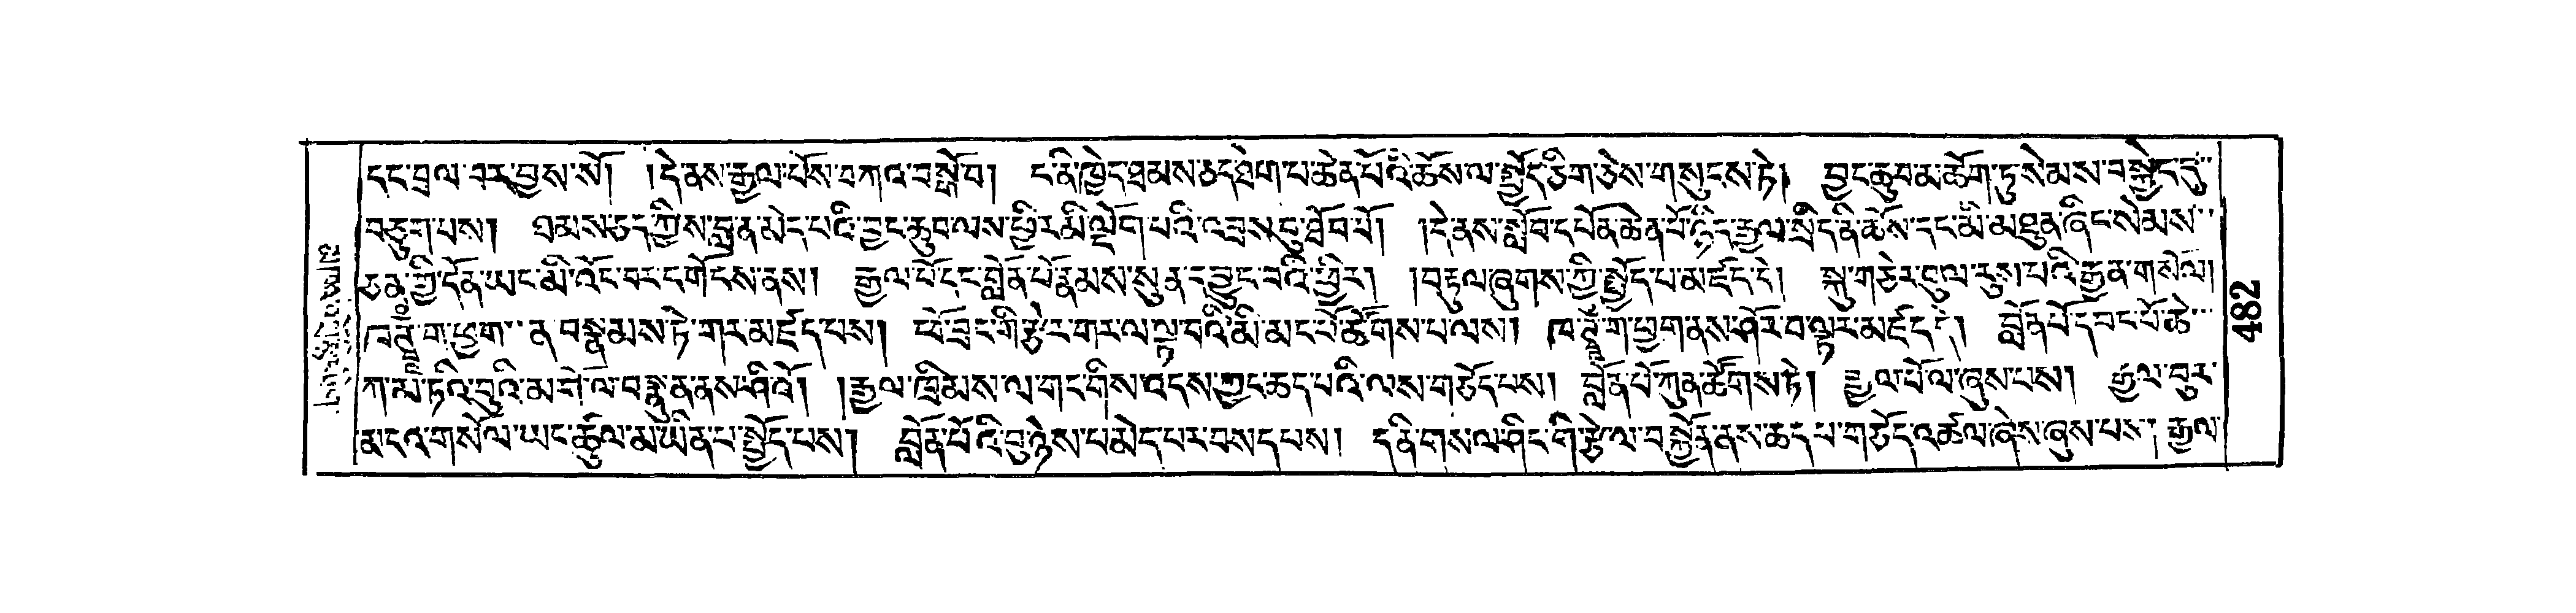 དང་བྲལ་བར་བྱས་སོ། །དེ་ནས་རྒྱལ་པོས་བཀའ་བསྒོ་བ། ང་ནི་ཁྱེད་ཐམས་ཅད་ཐེག་པ་ཆེན་པོའི་ཆོས་ལ་སྤྱོད་ཅིག་ཅེས་གསུངས་ཏེ། བྱང་ཆུབ་མཆོག་ཏུ་སེམས་བསྐྱེད་དུ་
བཅུག་པས། ཐམས་ཅད་ཀྱིས་བླ་ན་མེད་པའི་བྱང་ཆུབ་ལས་ཕྱིར་མི་ལྡོག་པའི་འབྲས་བུ་ཐོབ་པོ། །དེ་ནས་སློབ་དཔོན་ཆེན་པོ་ཉིད་རྒྱལ་སྲིད་ནི་ཆོས་དང་མི་མཐུན་ཞིང་སེམས་
ཅན་གྱི་དོན་ཡང་མི་འོང་བར་དགོངས་ནས། རྒྱལ་པོ་དང་བློན་པོ་རྣམས་སུན་དབྱུང་བའི་ཕྱིར། །བརྟུལ་ཞུགས་ཀྱི་སྤྱོད་པ་མཛད་དེ། སྐུ་གཅེར་བུ་ལ་རུས་པའི་རྒྱན་གསོལ།
ཁ་ཊྭཾ་ག་ཕྱག་ན་བསྣམས་ཏེ་གར་མཛད་པས། ཕོ་བྲང་གི་རྩེར་གར་ལ་ལྟ་བའི་མི་མང་པོ་ཚོགས་པ་ལས། ཁ་ཊྭཾ་ག་ཕྱག་ནས་ཤོར་བ་ལྟར་མཛད་དེ། བློན་པོ་དབང་པོ་ཆེ་
ཀ་མ་ཏའི་བུའི་མགོ་ལ་བསྣུན་ནས་ཤིའོ། །རྒྱལ་ཁྲིམས་ལ་གང་གིས་འདས་ཀྱང་ཆད་པའི་ལས་གཅོད་པས། བློན་པོ་ཀུན་ཚོགས་ཏེ། རྒྱལ་པོ་ལ་ཞུས་པས། རྒྱལ་བུར་
ན་དའ་གསོལ་ཡང་ཚུལ་མ་ཡིན་པ་སྤྱོད་པས། བློན་པོའི་བུ་ཉེས་པ་མེད་པར་བསད་པས། ད་ནི་གསལ་ཤིང་གི་རྩེ་ལ་བསྐྱོན་ནས་ཆད་པ་གཅོད་འཚལ་ཞེས་ཞུས་པས། རྒྱལ་